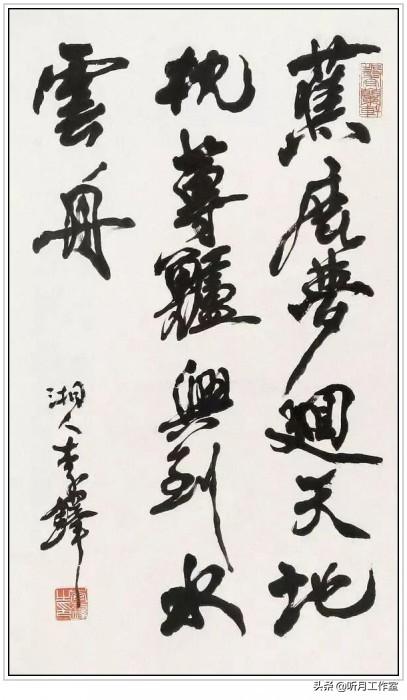 蕉鹿夢迴天地
枕蓴鱸興到水
雲舟
湘人李鐸
头条 @听月工作室